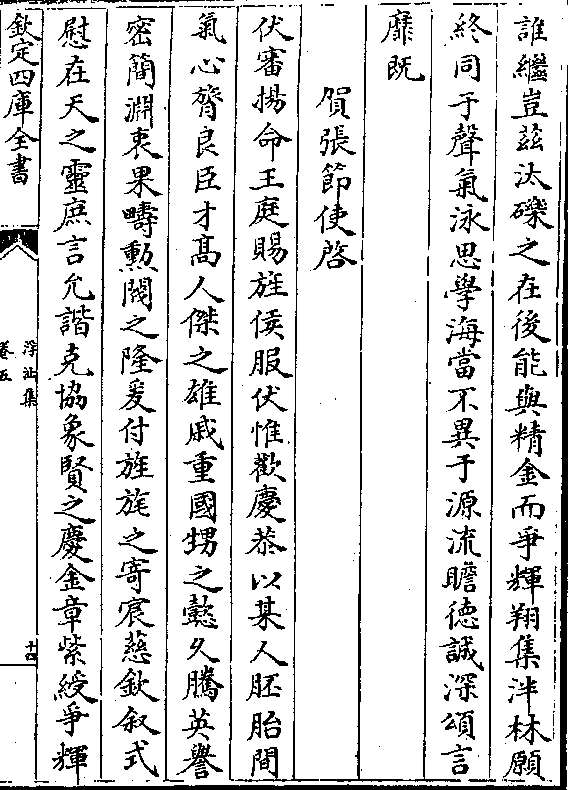 誰繼豈茲汰礫之在後能與精金而爭輝翔集泮林願
終同于聲氣泳思學海當不異于源流瞻德誠深頌言
靡既
賀張節使啓
伏審揚命王庭賜旌侯服伏惟歡慶恭以某人胚胎間
氣心膂良臣才髙人傑之雄戚重國甥之懿久騰英譽
密簡淵衷果疇勲閥之隆爰付旌旄之寄宸慈欽叙式
慰在天之靈庶言允諧克協象賢之慶金章紫綬爭輝
欽定四庫全書
浮沚集
卷五
十四